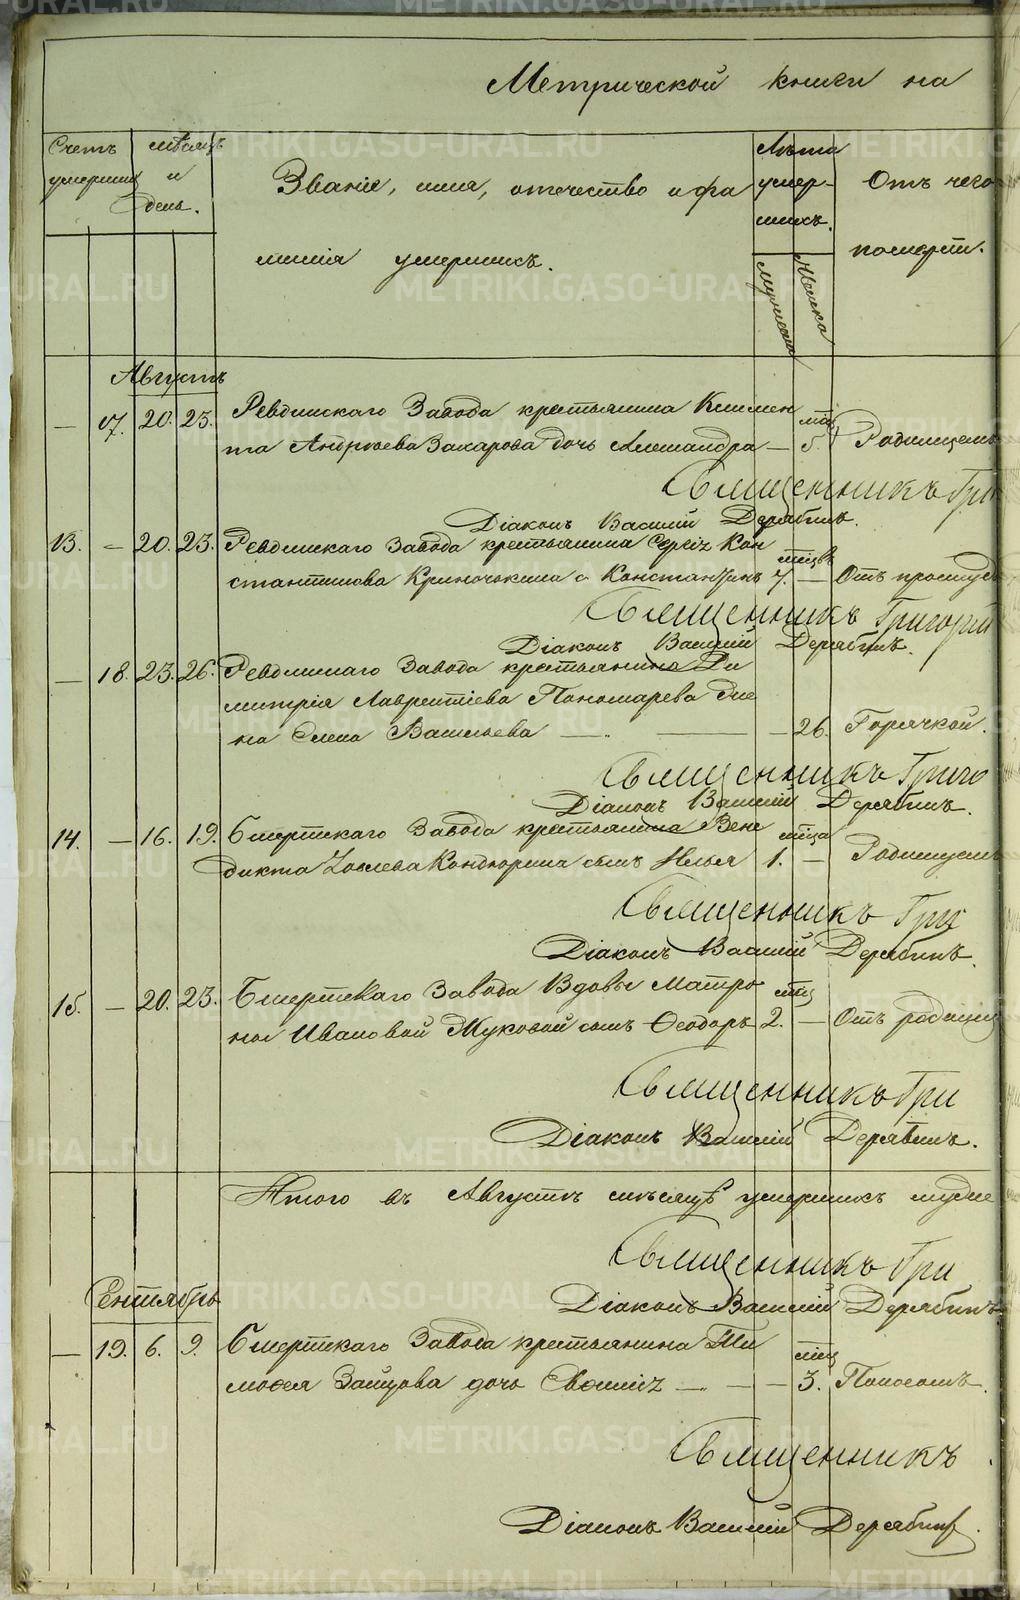 Метрической книги на
Счетъ умершихъ
мѣсяцъ и день.
Званіе, имя, отечество и фамилія умершихъ.
Лѣта умершихъ.
Мужеска
Женска
Отъ чего померъ.
Августъ
— 17. 20. 23. Ревдинскаго Завода крестьянина Климен мѣс
та Андреева Захарова дочь Александра — 5. Родимцемъ
Священникъ Гри
Діаконъ Василій Дерябинъ.
13. — 20. 23. Ревдинскаго Завода крестьянина Сергія Кон мѣсцъ
стантинова сынъ Константинъ 7. — Отъ простуд
Священникъ Григорій
Діаконъ Василій Дерябинъ.
— 18. 23. 26. Ревдинскаго Завода крестьянина Ди
митрія Лаврентіева Пономарева Же
на Елена Васильева — — 26. Горячкой.
Священникъ Григо
Діаконъ Василій Дерябинъ.
14. — 16. 19. Бисертскаго Завода крестьянина Вене мѣсца
дикта Кондюрина сынъ Илья 1. — Родимцемъ
Священникъ Гри
Діаконъ Василій Дерябинъ.
15. — 20. 23. Бисертскаго Завода Вдовы Матро мѣц
ны Ивановой Жуковой сынъ Ѳеодоръ 2. — Отъ родимц
Священникъ Гри
Діаконъ Василій Дерябинъ.
Итого въ Августѣ мѣсяцѣ умершихъ мужес
Священникъ Гри
Діаконъ Василій Дерябинъ
Сентябрь
— 19. 6. 9. Бисертскаго Завода крестьянина Ти мѣц
моѳея Зайцова дочь Евѳимія — — — 3. Поносомъ.
Священникъ
Діаконъ Василій Дерябинъ.
METRIKI.GASO-URAL.RU